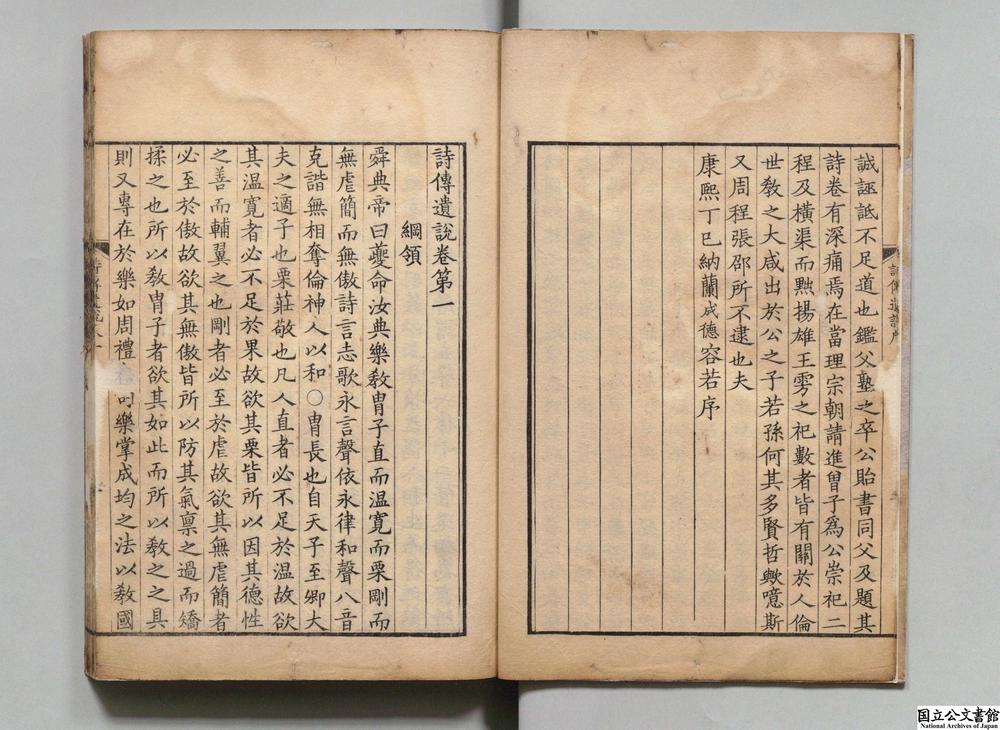 誠誣詆不足道也鑑父塾之卒公貽書同父及題其
詩卷有深痛焉在當理宗朝請進曾子爲公崇祀二
程及橫渠而黜揚雄王雱之祀數者皆有關於人倫
世敎之大咸出於公之子若孫何其多賢哲歟噫斯
又周程張邵所不逮也夫
康熙丁巳納蘭成德容若序
詩傳遺說卷第一
綱領
舜典帝曰夔命汝典樂敎胄子直而温寬而栗剛而
無虐簡而無傲詩言志歌永言聲依永律和聲八音
克諧無相奪倫神人以和○胄長也自天子至卿大
夫之適子也栗莊敬也凡人直者必不足於温故欲
其温寬者必不足於果故欲其栗皆所以因其德性
之善而輔翼之也剛者必至於虐故欲其無虐簡者
必至於傲故欲其無傲皆所以防其氣禀之過而矯
揉之也所以敎胄子者欲其如此而所以敎之之具
則又專在於樂如周禮司樂掌成均之法以敎國
詩傳遺說序
国立公文書館
National Archives of Japan